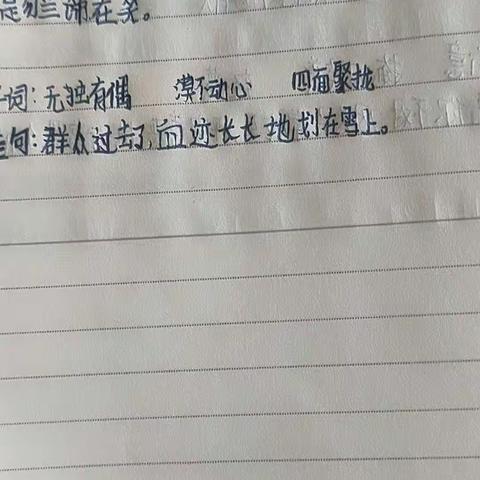 在笑。
词:无独有偶 漠不动心 四面聚拢
句:群众过去了,血迹长长地划在雪上。